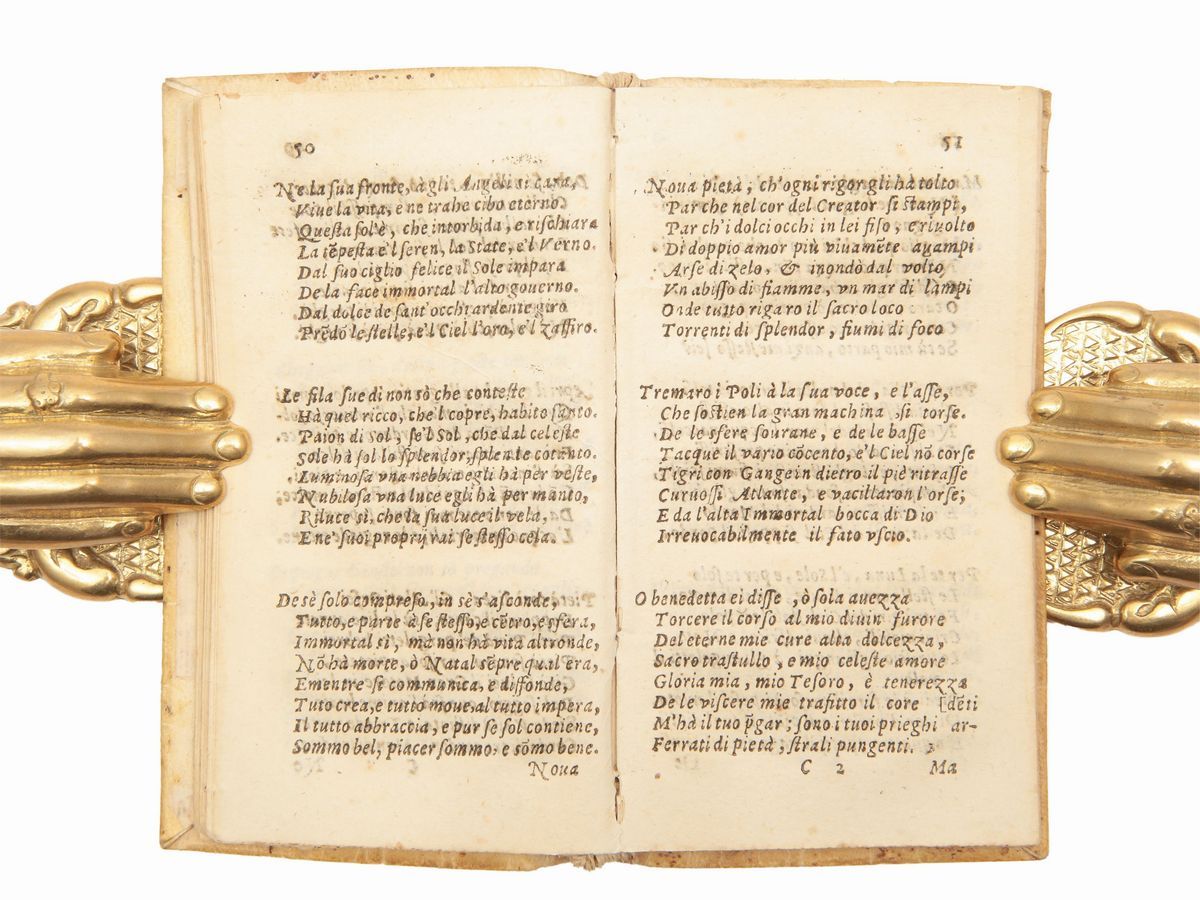 50
Ne la sua fronte, à gli Angeli sì cara,
Viue la vita, e ne trahe cibo eterno.
Questa sol'è, che intorbida, e rischiara
La tẽpesta e'l seren, la State, e'l Verno.
Dal suo ciglio felice il Sole impara
De la face immortal l'alto gouerno.
Dal dolce de sant'occhi ardente giro
Prẽdõ le stelle, e'l Ciel l'oro, e'l zaffiro.
Le fila sue di non sò che conteste
Hà quel ricco, che'l copre, habito santo.
Paion di Sol, se'l Sol, che dal celeste
Sole hà sol lo splendor, splente cotanto.
Luminosa vna nebbia egli hà per veste,
Nubilosa vna luce egli hà per manto,
Riluce sì, che la sua luce il vela,
E ne' suoi proprij rai se stesso cela.
De sè solo compreso, in sè s'asconde,
Tutto, e parte à se stesso, e cẽtro, e sfera,
Immortal sì, mà non hà vità altronde,
Nõ hà morte, ò Natal sẽpre qual era,
E mentre si communica, e diffonde,
Tuto crea, e tutto moue, al tutto impera,
Il tutto abbraccia, e pur se sol contiene,
Sommo bel, piacer sommo, e sõmo bene.
Noua
51
Noua pietà, ch'ogni rigor gli hà tolto
Par che nel cor del Creator si stampi,
Par ch'i dolci occhi in lei fiso, e riuolto
Di doppio amor più viuamẽte auampi
Arse di zelo, & inondò dal volto
Vn abisso di fiamme, vn mar di lampi
Onde tutto rigaro il sacro loco
Torrenti di splendor, fiumi di foco
Tremaro i Poli à la sua voce, e l'asse,
Che sostien la gran machina, si torse.
De le sfere sourane, e de le basse
Tacque il vario cõcento, e'l Ciel nõ corse
Tigri con Gange in dietro il piè ritrasse
Curuossi Atlante, e vacillaron l'orse;
E da l'alta Immortal bocca di Dio
Irreuocabilmente il fato vscio.
O benedetta ei disse, ò sola auezza
Torcere il corso al mio diuin furore
Del eterne mie cure alta dolcezza,
Sacro trastullo, e mio celeste amore
Gloria mia, mio Tesoro, è tenerezza
De le viscere mie trafitto il core [dẽti
M'hà il tuo p̃gar; sono i tuoi prieghi ar-
Ferrati di pietà; strali pungenti.
C 2 Ma